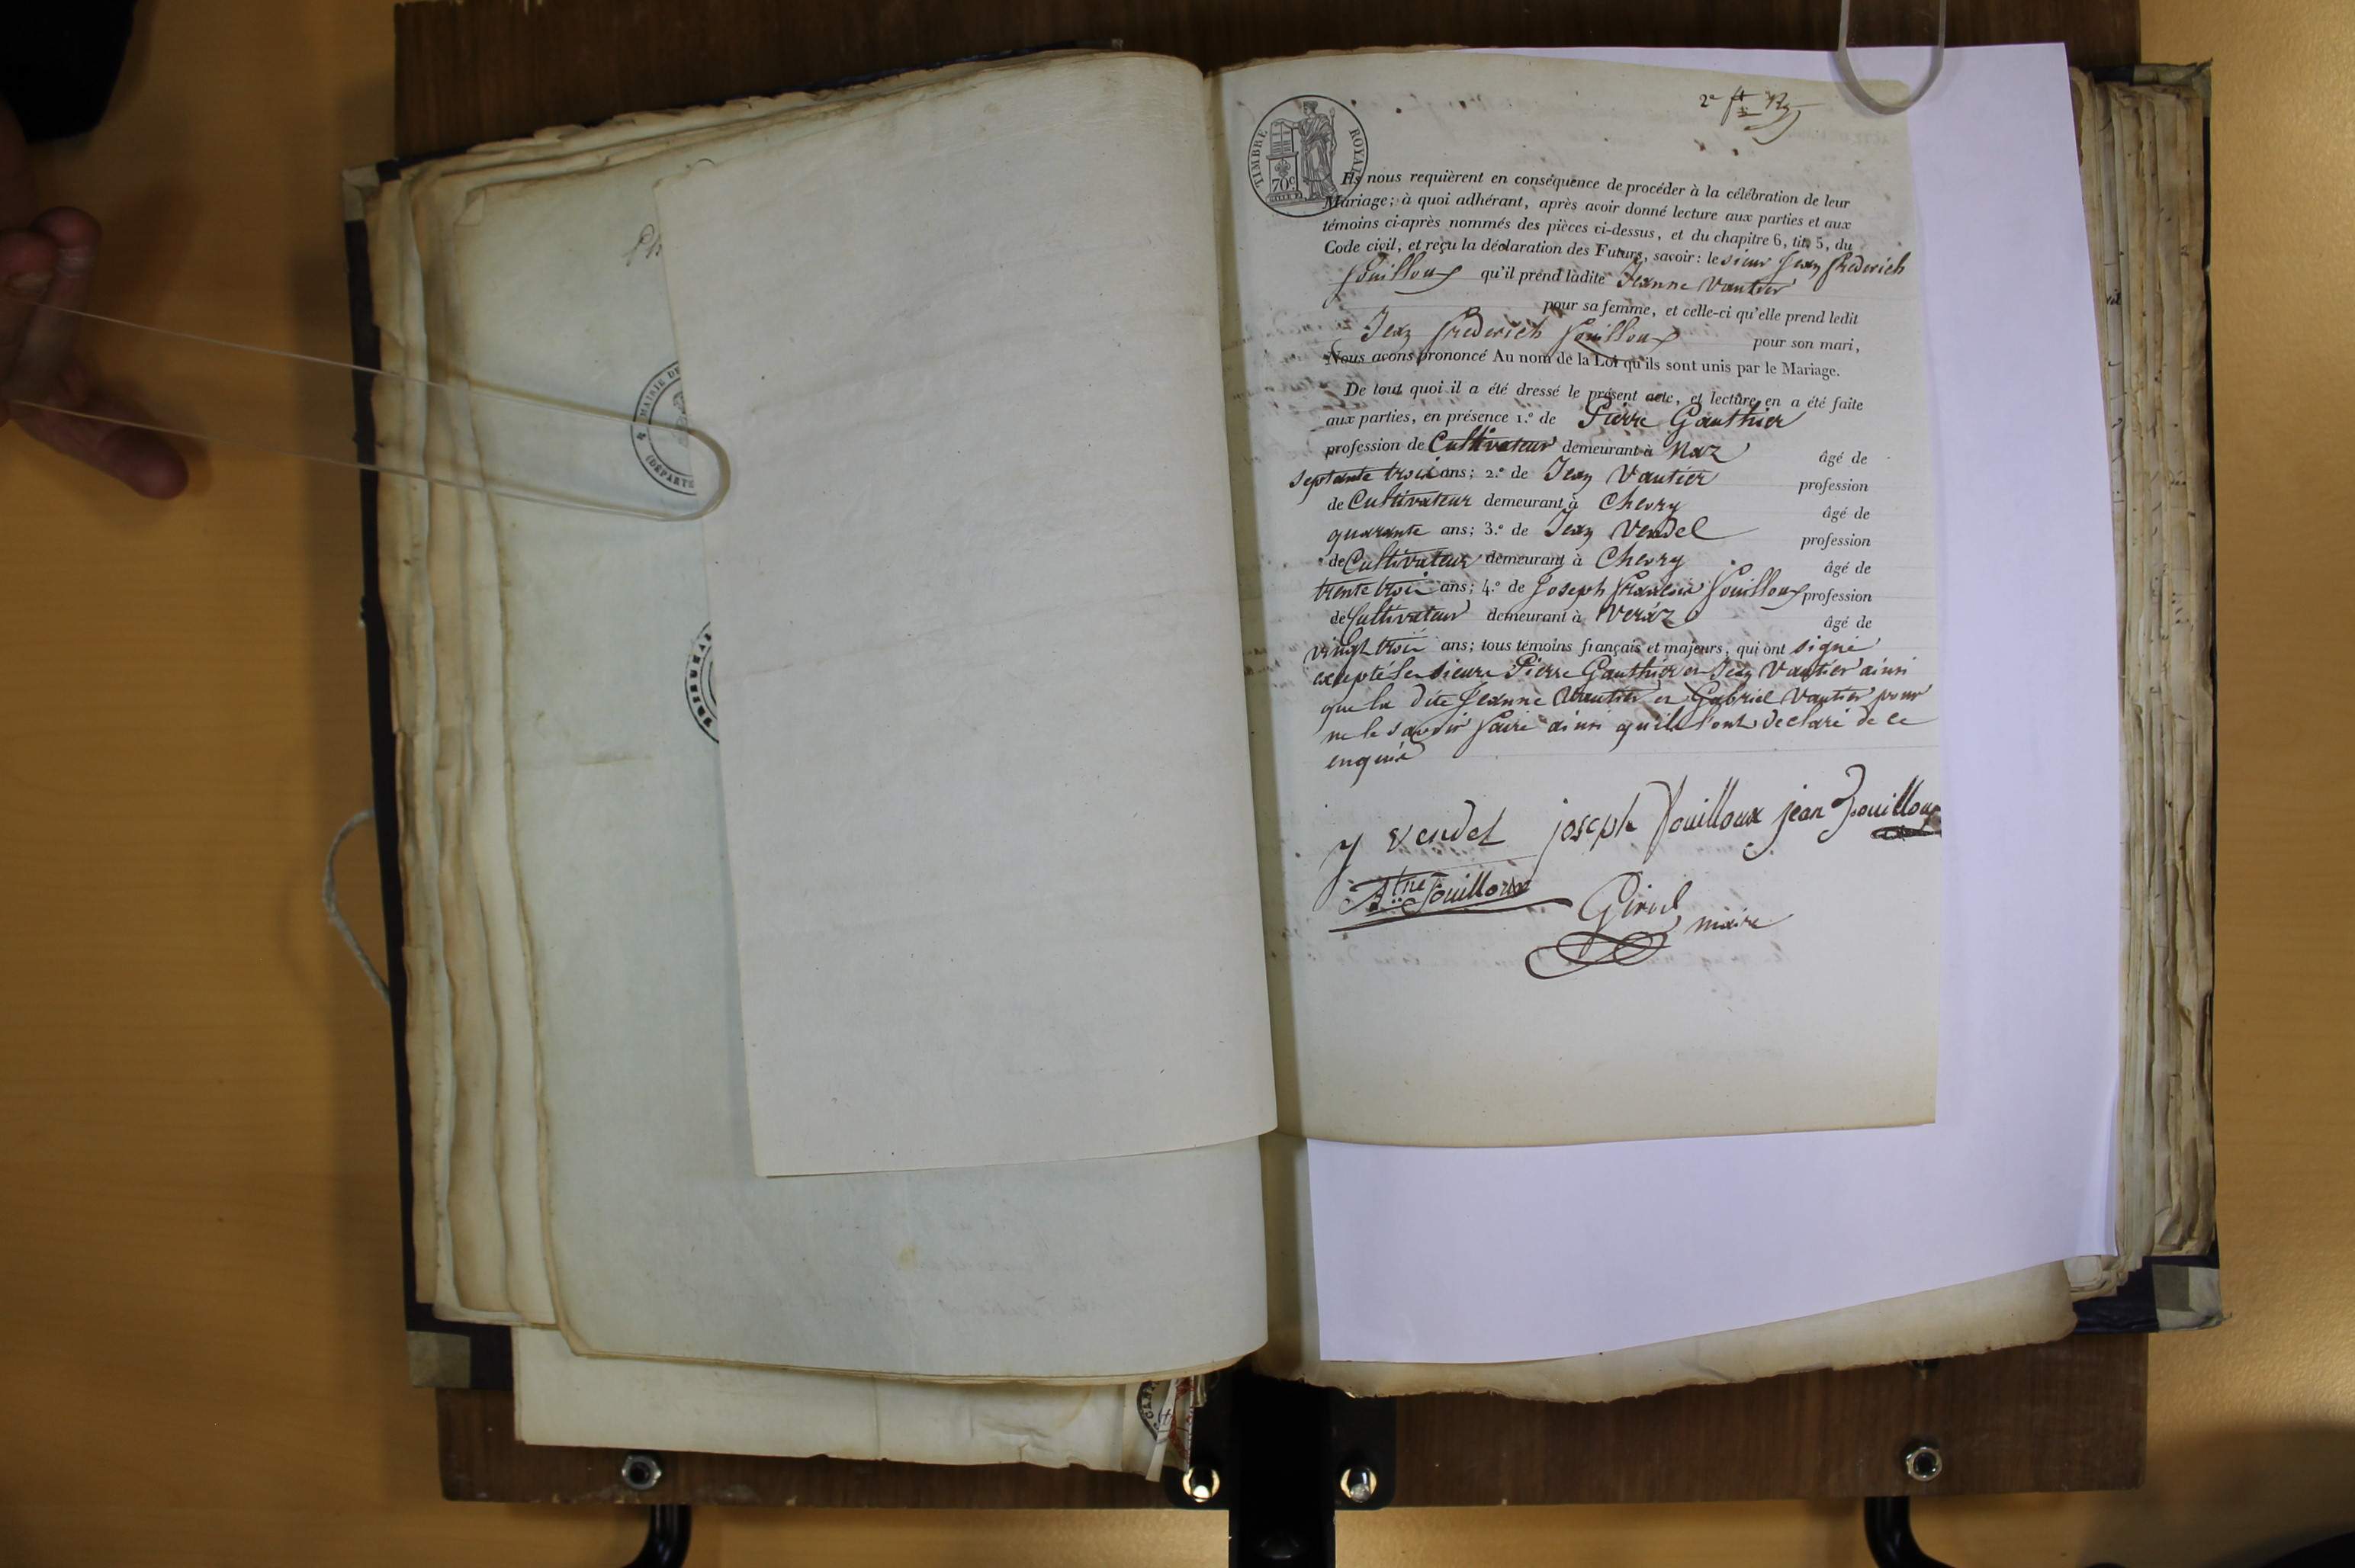 MAIRIE DE
(DÉPARTE
TRIBUNAL
TIMBRE ROYAL
70c
2e
Ils nous requièrent en conséquence de procéder à la célébration de leur
Mariage; à quoi adhérant, après avoir donné lecture aux parties et aux
témoins ci-après nommés des pièces ci-dessus, et du chapitre 6, tit. 5, du
Code civil, et reçu la déclaration des Futurs, savoir: le sieur Jean frederich
fouilloux qu'il prend ladite Jeanne Vautier
pour sa femme, et celle-ci qu'elle prend ledit
Jean frederich fouilloux pour son mari,
Nous avons prononcé Au nom de la Loi qu'ils sont unis par le Mariage.
De tout quoi il a été dressé le présent acte, et lecture en a été faite
aux parties, en présence 1.º de Pierre Gauthier
profession de Cultivateur demeurant à Naz âgé de
septante trois ans; 2.º de Jean Vautier profession
de Cultivateur demeurant à Chevry âgé de
quarante ans; 3.º de Jean Vendel profession
de Cultivateur demeurant à Chevry âgé de
trente trois ans; 4.º de Joseph francois fouilloux profession
de Cultivateur demeurant à Veraz âgé de
vingt trois ans; tous témoins français et majeurs, qui ont signé
excepté les sieurs Pierre Gauthier et Jean Vautier ainsi
que la dite Jeanne Vautier et Gabriel Vautier pour
ne le savoir faire ainsi qu'ils l'ont declaré de ce
enquis
J Vendel joseph fouilloux jean fouilloux
Ane fouilloux
Girod maire